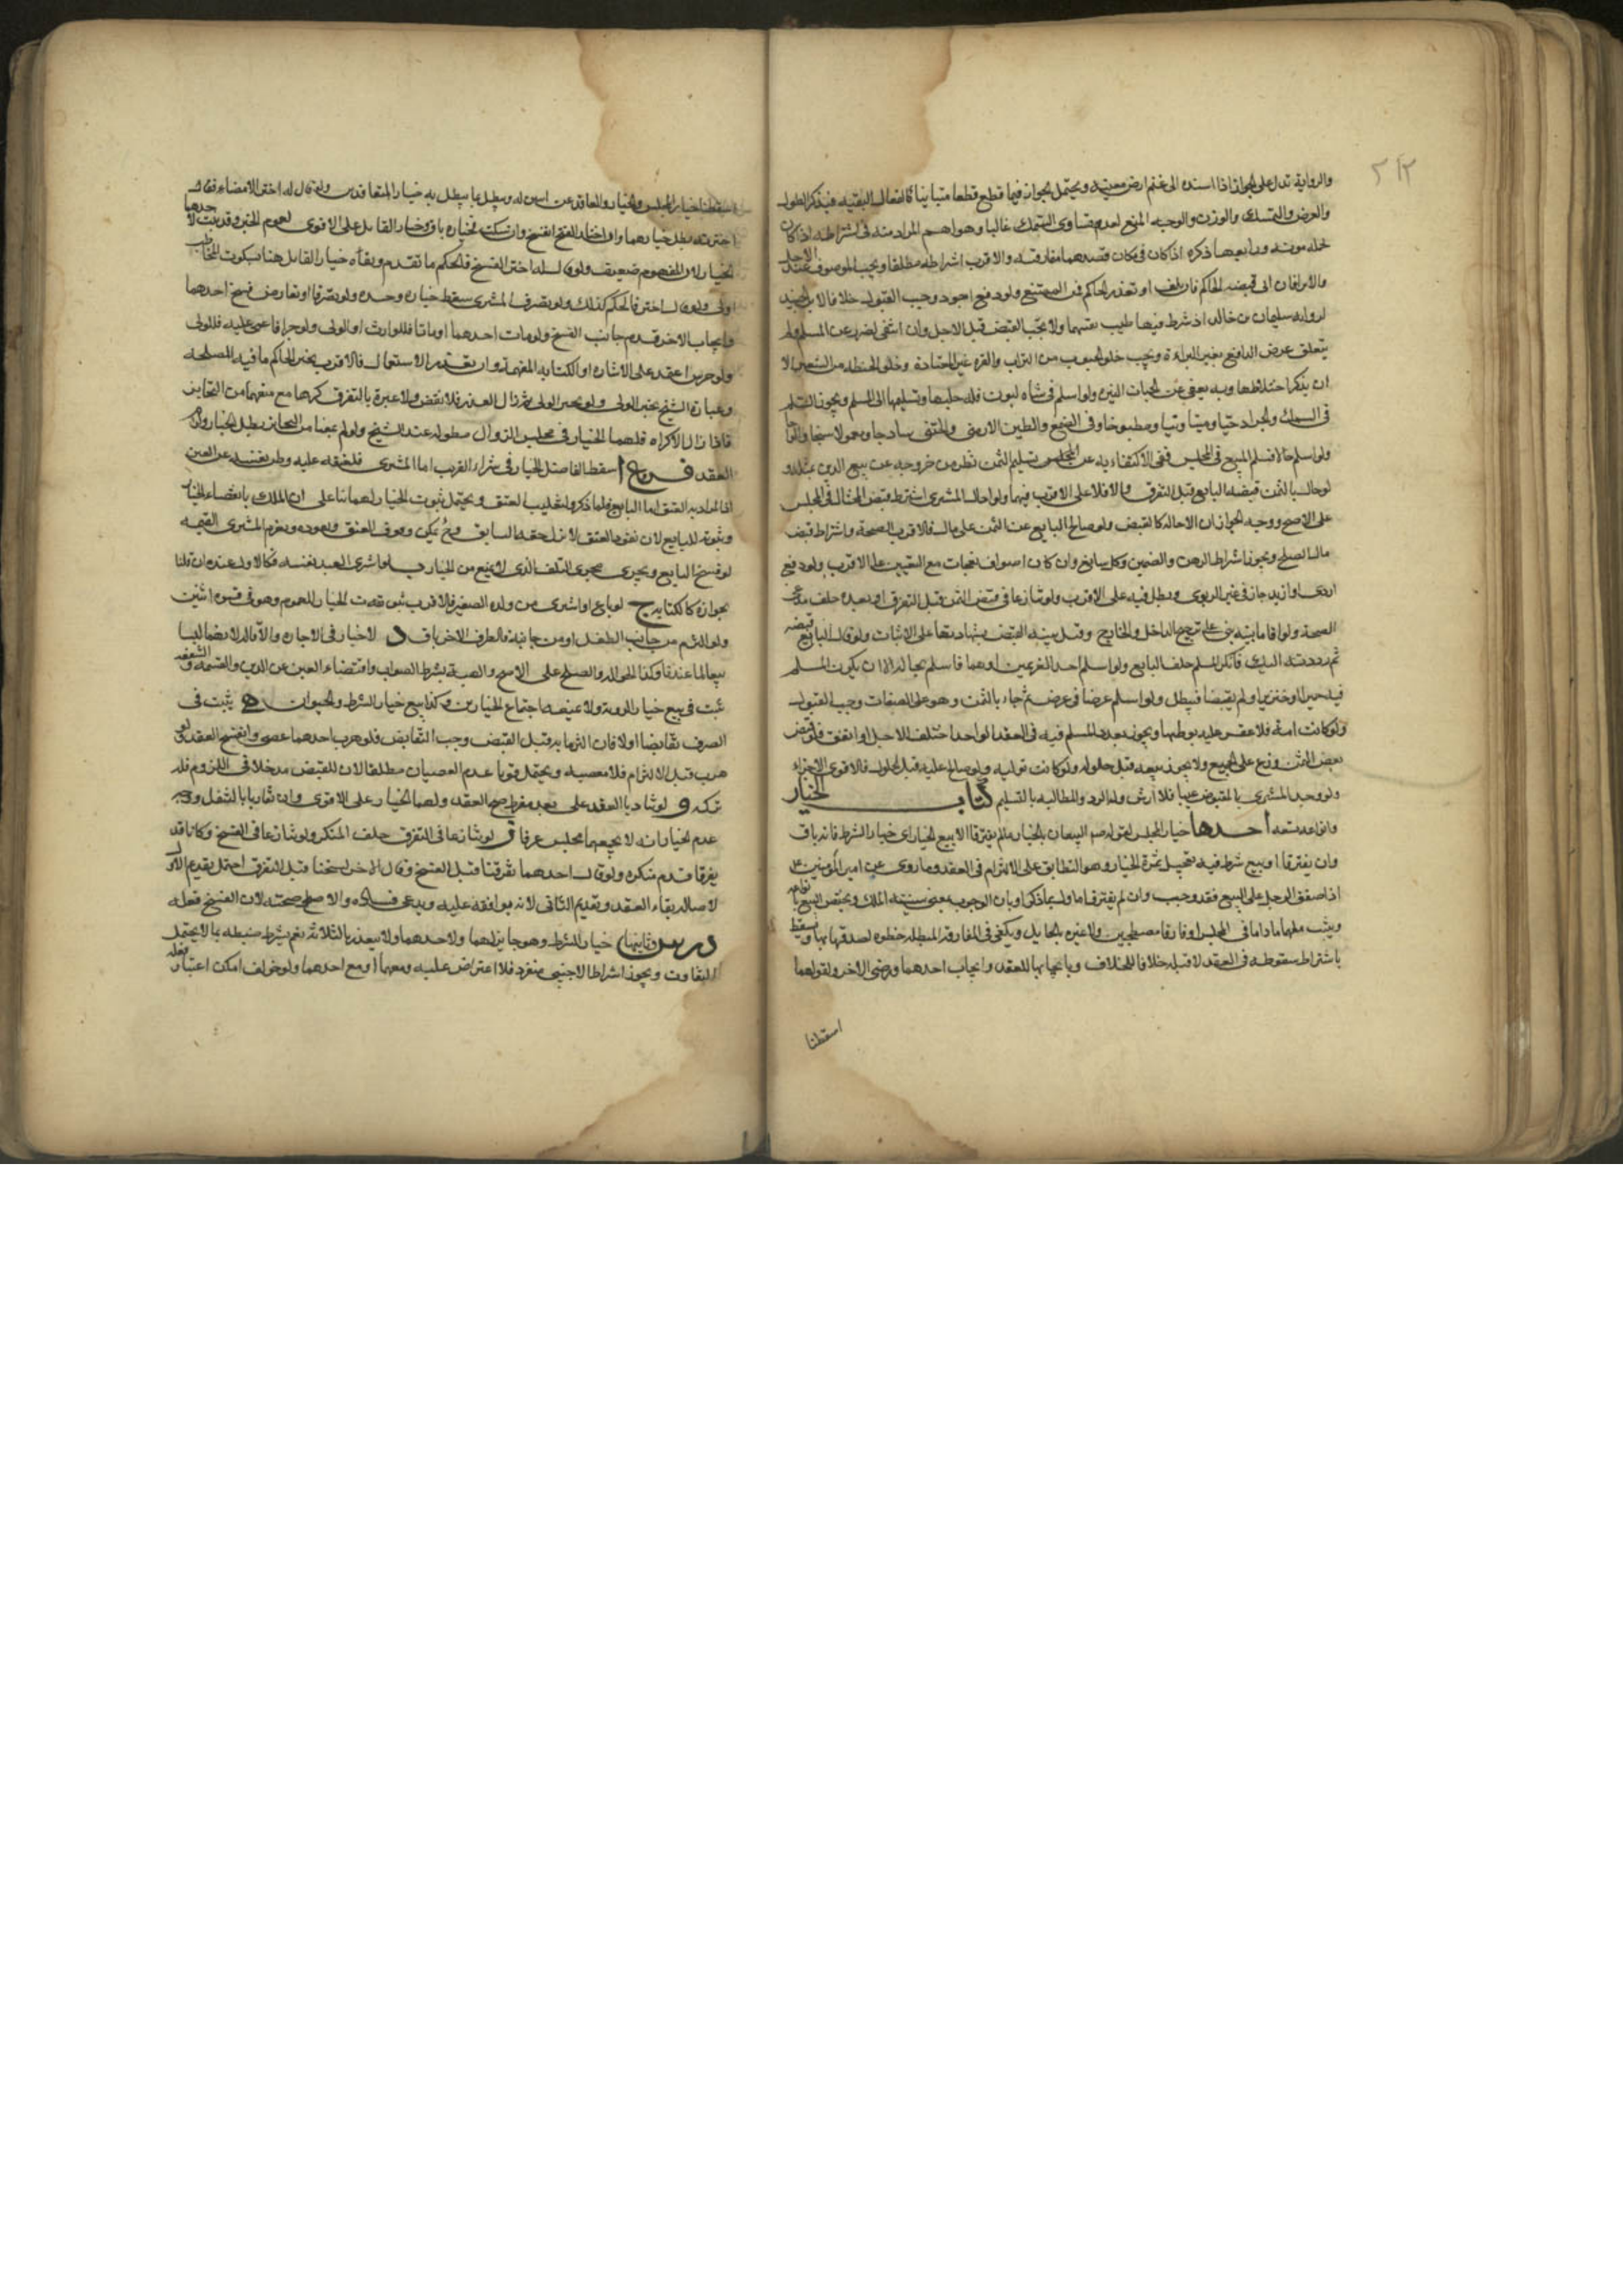 ٢١٢
والرواية تدل على الجواز اذا اسنده الى غنم ارض معينة ويحتمل الجواز فيما قطع قطعا متباينا كالنعال السبتية فيذكر الطول
والعرض والسمك والوزن والوجه المنع لعدم تساوي السمك غالبا وهو اهم المراد منه في اشتراطه اذا كان
لحمله مؤنة ورابعها ذكره اذا كان في مكان قصدهما مفارقته والاقرب اشتراطه مطلقا ويجب الموصوف عند الاجل
والابراء فان ابى قبضه الحاكم فان تلف او تعذر الحاكم فمن الممتنع ولو دفع اجود وجب القبول خلافا لابن الجنيد
لرواية سليمان بن خالد اذ شرط فيها طيب نفسهما ولا يجب القبض قبل الاجل وان انتفى الضرر عن المسلم ولم
يتعلق غرض البايع بغير البراءة ويجب خلو الحبوب من التراب والقره غير المعتادة وخلو الحنطة من الشعير الا
ان يذكر اختلاطها وبه يعفى عن الحبات اليسيرة ولو اسلم في شاة لبون فله حلبها وتسليمها الى المسلم ويجوز السلم
في السمك والجراد حيا وميتا ونيا ومطبوخا وفي الشمع والطين الارمني
ولو اسلم حالا فسلم المبيع في المجلس ففي الاكتفاء به عن المجلس تسليم الثمن نظر من خروجه عن بيع الدين بمثله
لو حال بالثمن قبضه البايع قبل التفرق والا فلا على الاقرب فيهما ولو احاله المشتري اشترط قبض المحتال في المجلس
على الاصح ووجه الجواز ان الاحالة كالقبض ولو صالح البايع عن الثمن على مال فالاقرب الصحة واشتراط قبض
مال الصلح ويجوز اشتراط الرهن والضمين وكل سايغ وان كان اصواف نعجات مع التعيين على الاقرب ولو دفع
اردى او ازيد جاز في غير الربوي ويبطل فيه على الاقرب ولو تنازعا في قبض الثمن قبل التفرق او بعده حلف مدعي
الصحة ولو اقاما بينة بنى على ترجيح الداخل والخارج وقيل بينة القبض لشهادتها على الاثبات ولو قال البايع قبضته
ثم رددته اليك فانكر المسلم حلف البايع ولو اسلم احد الغريمين
فيه خمرا او خنزيرا ولم يقبضا فيبطل ولو اسلم عرضا في عرض ثم جاء بالثمن وهو على الصفات وجب القبول
ولو كانت امة فلا عقر عليه بوطيها ويجوز تعدد المسلم فيه في العقد الواحد اختلف الاجل او اتفق فلو قبض
بعض الثمن وزع على الجميع ولا يجوز بيعه قبل حلوله ولو كانت تولية ولو صالح عليه قبل الحلول فالاقوى الاجزاء
ولو وجد المشتري بالمقبوض عيبا فلا ارش وله الرد والمطالبة بالتسليم كتاب الخيار
وانواعه تسعة احدها خيار المجلس لقوله صم البيعان بالخيار ما لم يفترقا الا بيع الخيار اي خيار الشرط فانه باق
وان يفترقا او بيع شرط فيه تحصيل ثمرة الخيار وهو التطابق على الالتزام في العقد وما روى عن امير المؤمنين ع
اذا صفق الرجل على البيع فقد وجب وان لم يفترقا
ويثبت ملهما ما داما في المجلس او فارقا مصطحبين ولا عبرة بالحايل ويكفي في المفارقة المبطلة خطوة لصدقها بها ويسقط
باشتراط سقوطه في العقد لا قبله خلافا للخلاف وبايجابها للعقد وايجاب احدهما ورضى الاخر ولقولهما
اسقطنا
اسقطنا خيار المجلس والخيار والعاقد عن اثنين له ويبطل بما يبطل به خيار المتعاقدين ولو قال له اختر الامضاء فقال
اخترته بطل خيارهما وان اختار الفسخ انفسخ وان سكت فخياره باق وخيار القايل على الاقوى لعموم الخبر وقد يثبت لاحدهما
الخيار لان المفهوم ضعيف ولو قال له اختر الفسخ فالحكم ما تقدم وبقاء خيار القايل هنا بسكوت المخاطب
اولى ولو قال اختر فالحكم كذلك ولو تصرف المشتري سقط خياره وحده ولو تصرفا او تعارض فسخ احدهما
وايجاب الاخر قدم جانب الفسخ ولو مات احدهما او ماتا فللوارث او الولي ولو جن او اغمى عليه فللولي
ولو خرس اعتمد على الاشارة او الكتابة المفهمة وان تعذر الاستعمال فالاقرب يتخير الحاكم ما فيه المصلحة
وعبارة الشيخ يتخير الولي ولو تخير الولي ثم زال العذر فلا نقض ولا عبرة بالتفرق كرها مع منعهما من التخاير
فاذا زال الاكراه فلهما الخيار في مجلس الزوال
العقد فروع ا اسقط الفاضل الخيار في شراء القريب اما المشتري فلعتقه عليه
اما البايع فلما ذكر ولتغليب العتق ويحتمل ثبوت الخيار لهما بناء على ان الملك بانقضاء الخيار
وثبوته للبايع لان نفوذ العتق لا يزيل حقه السابق وح يمكن وقوف العتق ونفوذه ويغرم المشتري القيمة
لو فسخ البايع ويجري مجرى التلف الذي لا يمنع من الخيار ب لو اشترى العبد نفسه فكالاول عند ان قلنا
بجوازه كالكتابة ج لو باع او اشترى من ولده الصغير فالاقرب ثبوت الخيار للعموم وهو في قوة اثنين
ولو التزم من جانب الطفل او من جانبه فالطرف الاخر باق د لا خيار في الاجارة والاقالة لانهما ليسا
بيعا عندنا وكذا الحوالة والصلح على الاصح والهبة بشرط الثواب واقتضاء العين عن الدين والقسمة والشفعة
ثبت في بيع خيار الروية ولا يمنعه اجتماع الخيارين وكذا بيع خيار الشرط والحيوان ه يثبت في
الصرف تقابضا او لا فان التزما به قبل القبض وجب التقابض فلو هرب احدهما عصى وانفسخ العقد ولو
هرب قبل الالتزام فلا معصية ويحتمل قويا عدم العصيان مطلقا لان للقبض مدخلا في اللزوم فله
تركه و لو تناديا بالعقد على بعد مفرط صح العقد ولهما الخيار على الاقوى وان تقاربا بالتنقل ووجه
عدم الخيار انه لا يجمعهما مجلس عرفا ز لو تنازعا في التفرق حلف المنكر ولو تنازعا في الفسخ وكانا قد
تفرقا قدم منكره ولو قال احدهما تفرقنا قبل الفسخ وقال الاخر فسخنا قبل التفرق احتمل تقديم الاول
لاصالة بقاء العقد وتقديم الثاني لانه يوافقه عليه ويدعى فساده والاصل صحته لان الفسخ فعله
درس وثانيها خيار الشرط وهو جايز لهما ولاحدهما ولا يتقدر بالثلاثة نعم يشترط ضبطه بما لا يحتمل
التفاوت ويجوز اشتراطه لاجنبي منفردا فلا اعتراض عليه ومعهما او مع احدهما ولو خولف امكن اعتبار فعله